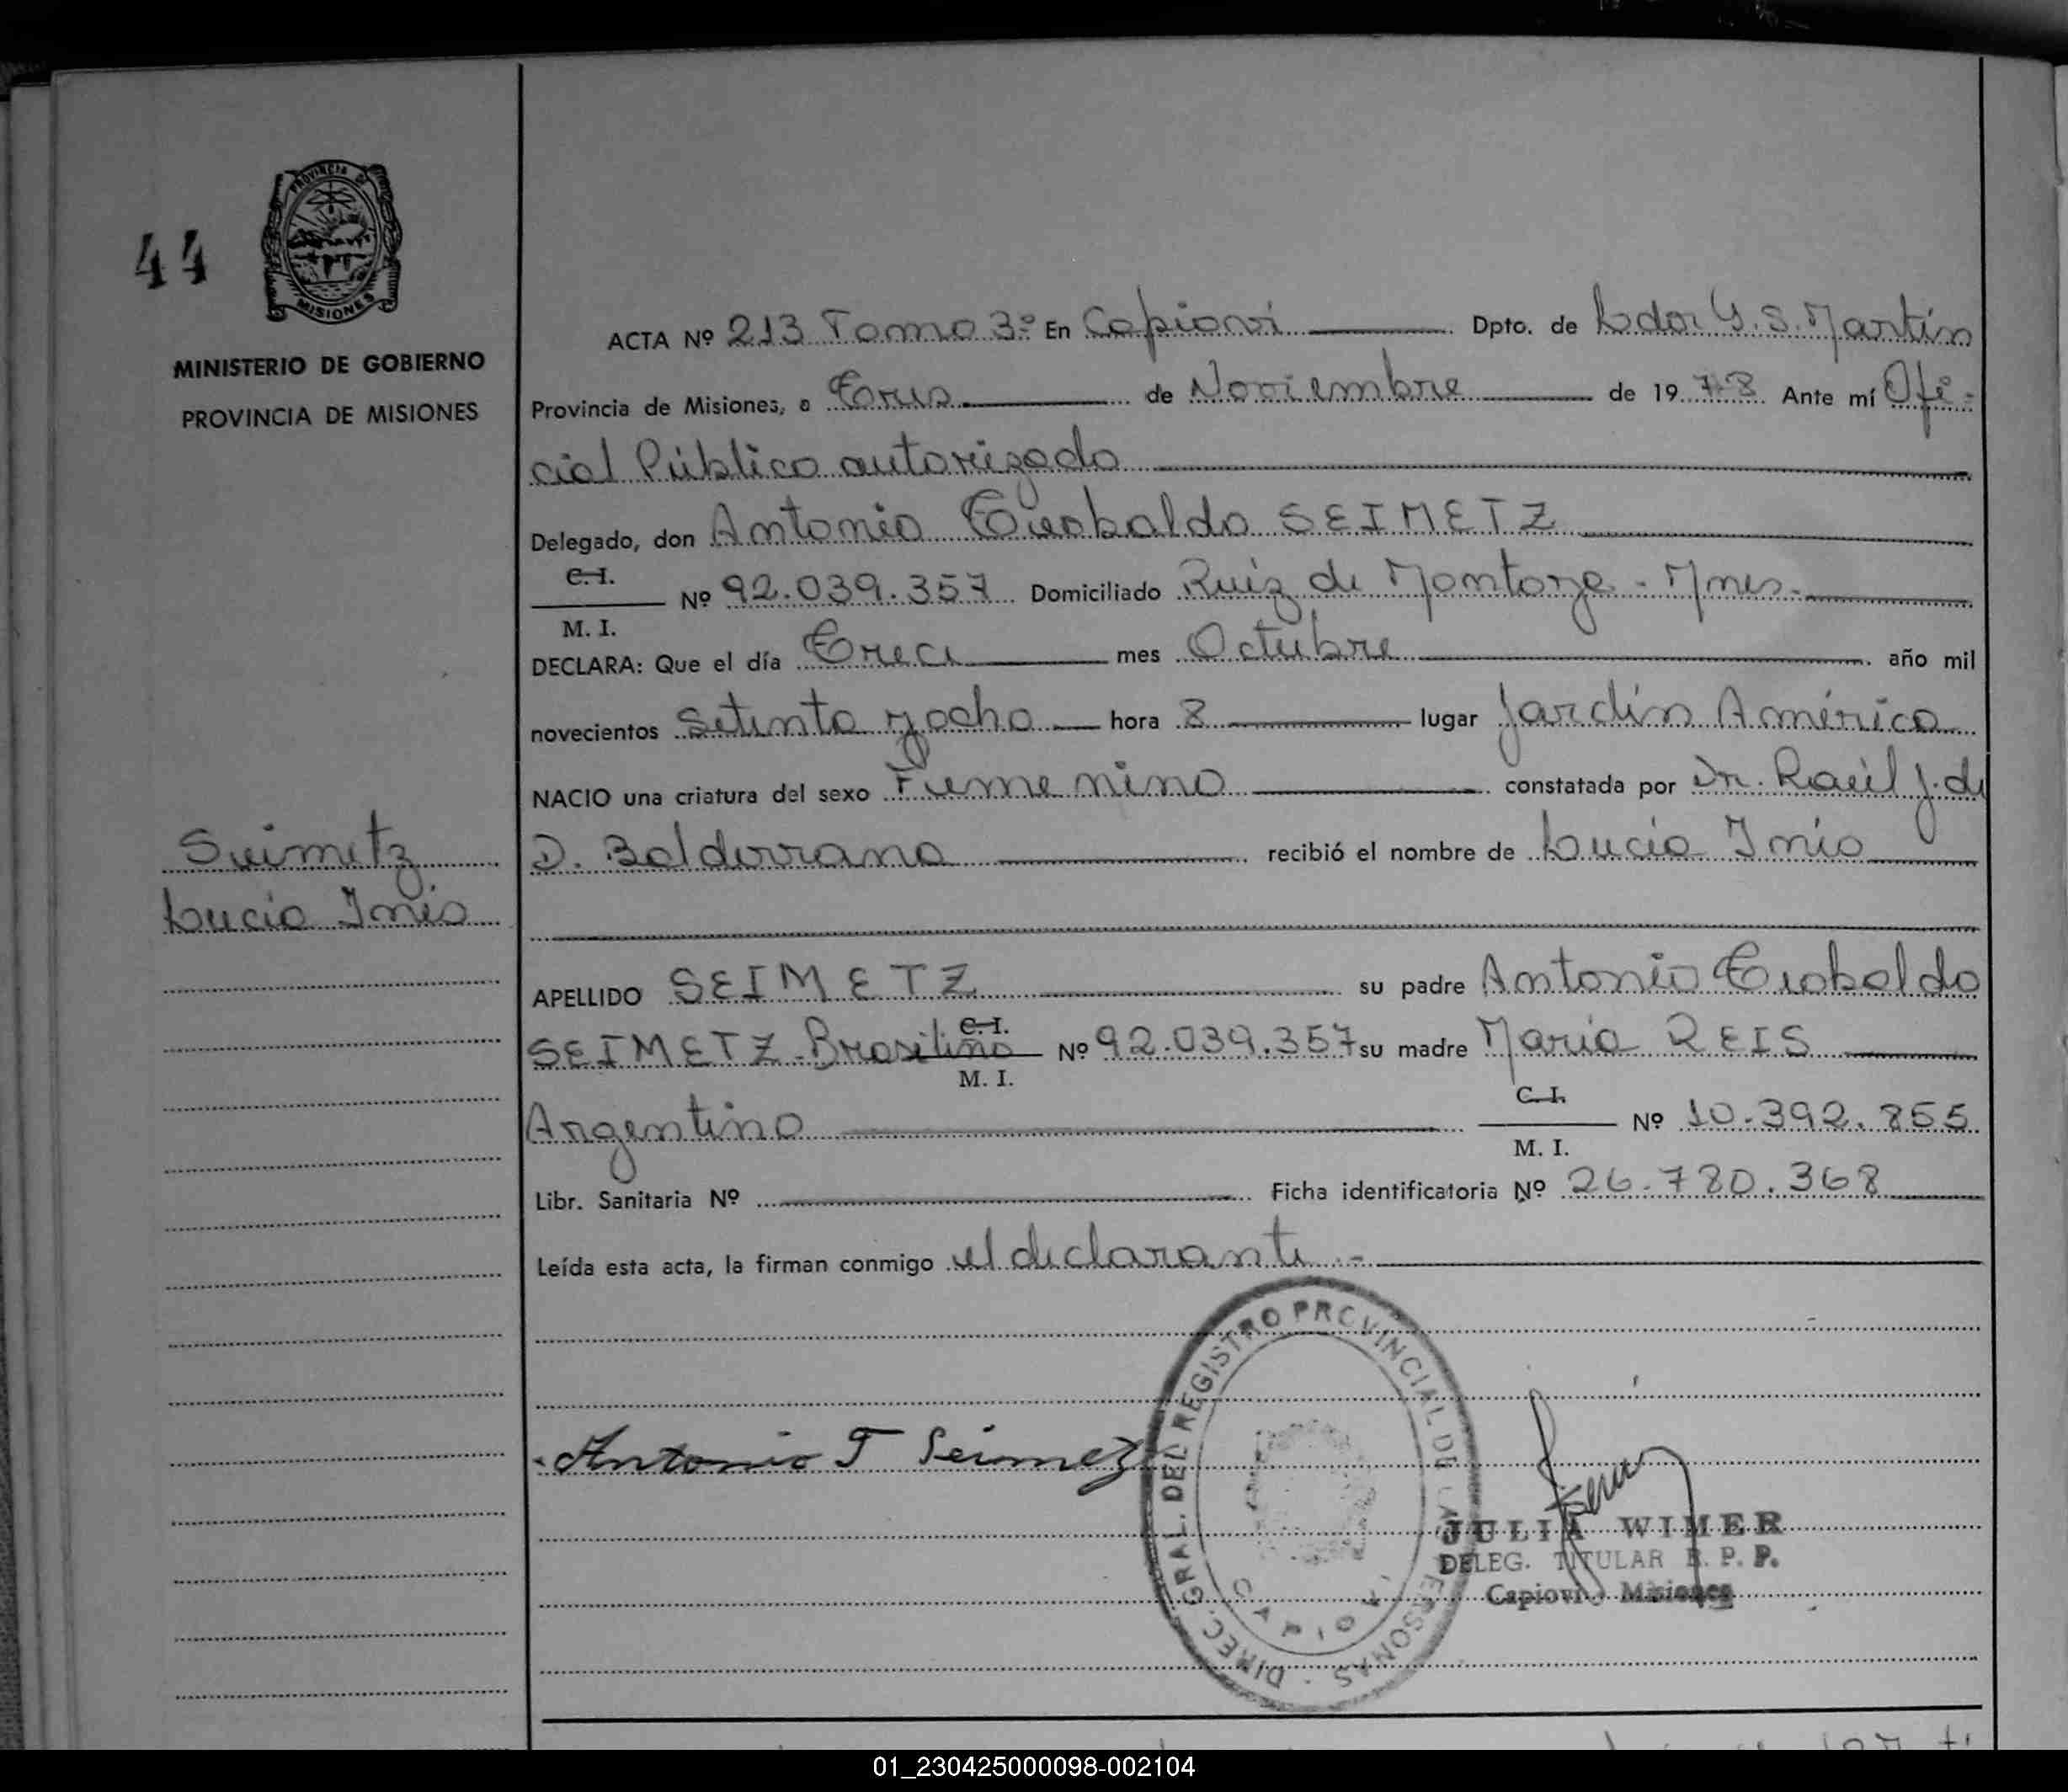 44
PROVINCIA DE
MISIONES
MINISTERIO DE GOBIERNO
PROVINCIA DE MISIONES
Seimetz
Lucia Inés
ACTA Nº 213 Tomo 3º En Capiovi Dpto. de Ldor G. S. Martín
Provincia de Misiones, a Tres de Noviembre de 19 78 Ante mí Ofi-
cial Público autorizado
Delegado, don Antonio Teobaldo SEIMETZ
C. I.
M. I. Nº 92.039.357 Domiciliado Ruiz de Montoya - Mnes.
DECLARA: Que el día Trece mes Octubre año mil
novecientos Setenta y ocho hora 8 lugar Jardín América
NACIO una criatura del sexo Femenino constatada por Dr. Raúl J. de
D. Balderrama recibió el nombre de Lucia Inés
APELLIDO SEIMETZ su padre Antonio Teobaldo
SEIMETZ - Brasileño C. I. M. I. Nº 92.039.357 su madre María REIS
Argentina C. I. M. I. Nº 10.392.855
Libr. Sanitaria Nº Ficha identificatoria Nº 26.780.368
Leída esta acta, la firman conmigo el declarante.-
Antonio T Seimez
DIREC. GRAL. DEL REGISTRO PROVINCIAL DE LAS PERSONAS
CAPIOVI
JULIA WIMER
DELEG. TITULAR R. P. P.
Capiovi - Misiones
01_230425000098-002104